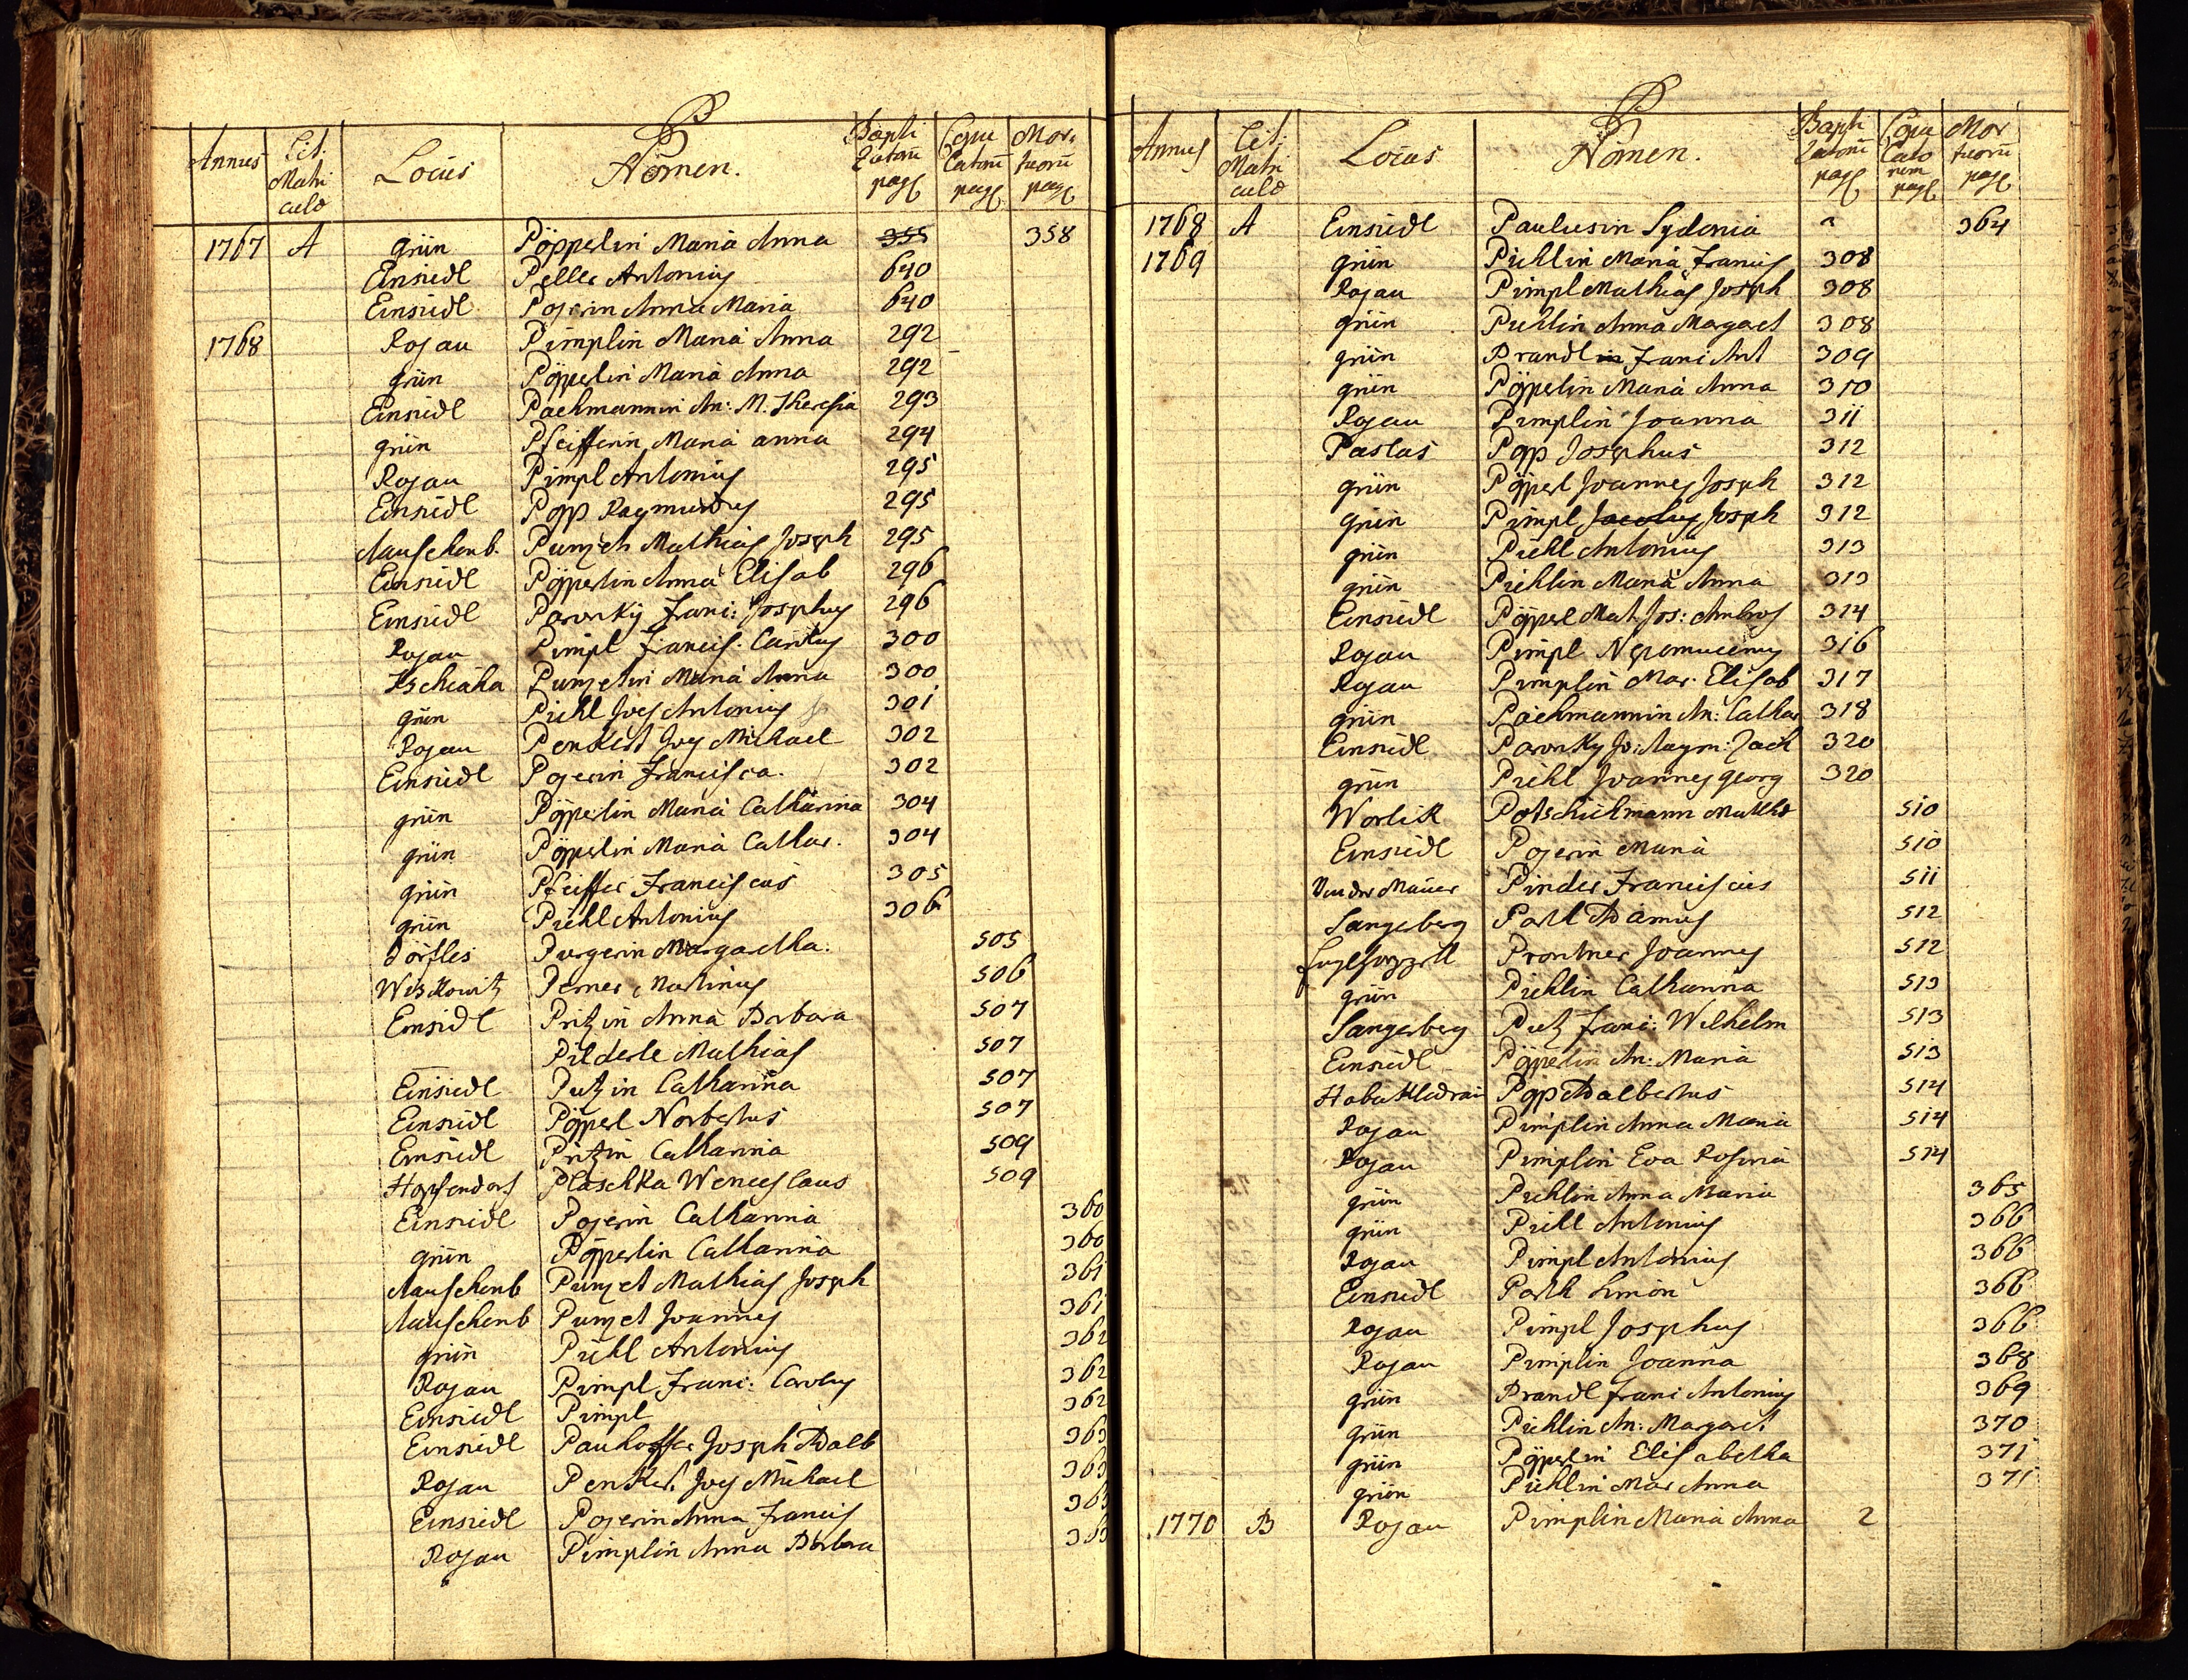 P
Annus Lit. Matri culæ Locus Nomen. Bapti zatorū pag. Copu latorū pag. Mor tuorū pag.
1767 A grün Pöpperlin Maria Anna 355 358
Einsiedl Peller Antonius 640
Einsiedl Pojerin Anna Maria 640
1768 Rojau Pimplin Maria Anna 292
grün Pöpperlin Maria Anna 292
Einsiedl Pachmannin An: M. Theresia 293
grün Pfeifferin Maria anna 294
Rojau Pimpl Antonius 295
Einsiedl Popp Raymundus 295
Auschenb. Punzet Mathias Joseph 295
Einsiedl Pöpperlin Anna Elisab 296
Einsiedl Paworky Franc: Josephus 296
Rojau Pimpl Francis. Carolus 300
Punzetin Maria Anna 300
grün Piehl Joes Antonius 301
Rojau Penkert Joes Michael 302
Einsiedl Pojerin Francisca. 302
grün Pöpperlin Maria Catharina 304
grün Pöpperlin Maria Cathar. 304
grün Pfeiffer Franciscus 305
grün Piehl Antonius 306
Dörfles Purgerin Margaretha. 505
Witzkowitz Perner Martinus 506
Einsidl Pritzin Anna Barbara 507
Pilderle Mathias 507
Einsiedl Putzin Catharina 507
Einsiedl Pöpperl Norbertus 507
Einsiedl Pritzin Catharina 509
Hopfendorf Plaschka Wenceslaus 509
Einsiedl Pojerin Catharina 360
grün Pöpperlin Catharina 360
Auschenb Punzet Mathias Joseph 361
Auschenb Punzet Joannes 361
grün Piehl Antonius 362
Rojau Pimpl Franc: Carolus 362
Einsiedl Pimpl 362
Einsiedl Pauhoffer Joseph Adalb 363
Rojau Penker. Joes Michael 363
Einsiedl Pojerin Anna Francis 363
Rojau Pimplin Anna Barbara 363
P
Annus Lit. Matri culæ Locus Nomen. Bapti zatorū pag. Copu lato rum pag. Mor tuorū pag.
1768 A Einsiedl Paulusin Sydonia 364
1769 grün Piehlin Maria Francis 308
Rojau Pimpl Mathias Joseph 308
grün Piehlin Anna Margaret 308
grün Prandlin Franc Ant 309
grün Pöpperlin Maria Anna 310
Rojau Pimplin Joanna 311
Paslas Popp Josephus 312
grün Pöpperl Joannes Joseph 312
grün Pimpl Jacobus Joseph 312
grün Piehl Antonius 313
grün Piehlin Maria Anna 313
Einsiedl Pöpperl Mat. Jos: Ambros 314
Rojau Pimpl Nepomucenus 316
Rojau Pimplin Mar. Elisab 317
grün Pachmannin An: Cathar 318
Einsiedl Paworky Jo: Raym: Zach 320
grün Piehl Joannes georg 320
Worlik Potschickmann Mathes 510
Einsiedl Pojerin Maria 510
Von der Mauer Pinder Franciscus 511
Sangerberg Partl Adamus 512
Prontner Joannes 512
grün Piehlin Catharina 513
Sangerberg Putz Franc: Wilhelm 513
Einsiedl Pöpperlin An: Maria 513
Habakladrau Popp Adalbertus 514
Rojau Pimplin Anna Maria 514
Rojau Pimplin Eva Rosina 514
grün Piehlin Anna Maria 365
grün Piehl Antonius 366
Rojau Pimpl Antonius 366
Einsiedl Parth Simon 366
Rojau Pimpl Josephus 366
Rojau Pimplin Joanna 368
grün Prandl Franc Antonius 369
grün Piehlin An: Margaret 370
grün Pöpperlin Elisabetha 371
grün Piehlin Mar Anna 371
1770 B Rojau Pimplin Maria Anna 2